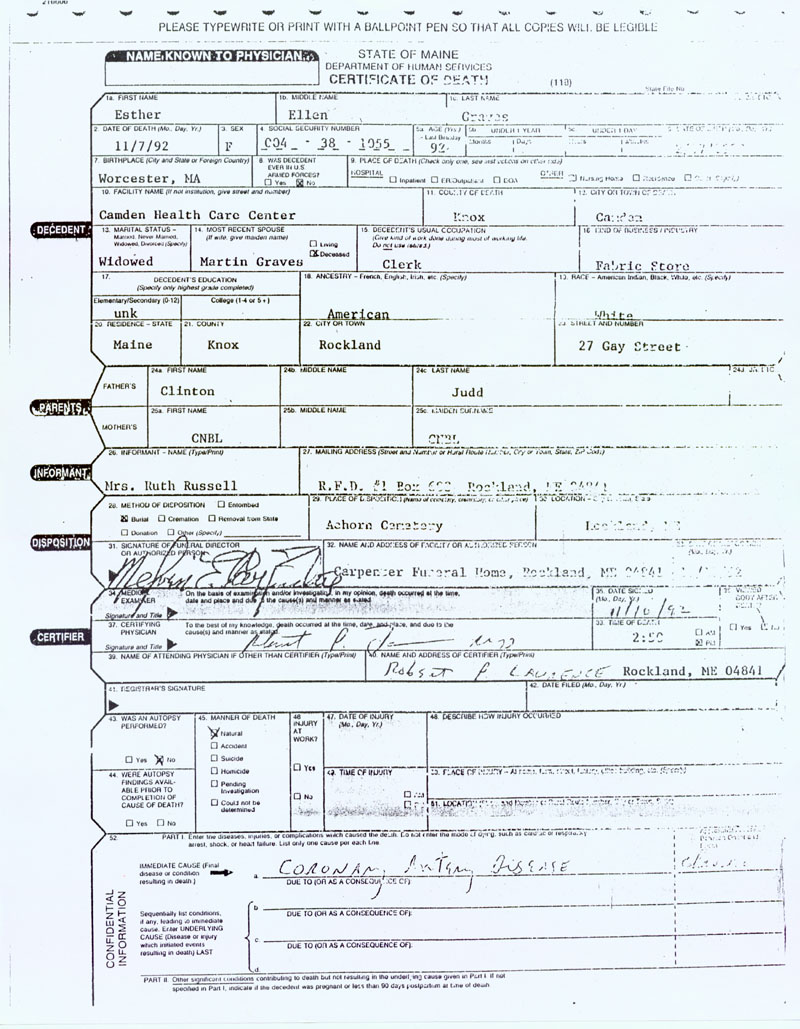 PLEASE TYPEWRITE OR PRINT WITH A BALLPOINT PEN SO THAT ALL COPIES WILL BE LEGIBLE
NAME KNOWN TO PHYSICIAN
STATE OF MAINE
DEPARTMENT OF HUMAN SERVICES
CERTIFICATE OF DEATH
State File No.
1a. FIRST NAME 1b. MIDDLE NAME 1c. LAST NAME
Esther Ellen Graves
2. DATE OF DEATH (Mo., Day, Yr.) 3. SEX 4. SOCIAL SECURITY NUMBER 5a. AGE (Yrs.) Last Birthday UNDER 1 YEAR UNDER 1 DAY
Months Days
11/7/92 F 004 - 38 - 1955 92
7. BIRTHPLACE (City and State or Foreign Country) 8. WAS DECEDENT EVER IN U.S. ARMED FORCES? 9. PLACE OF DEATH (Check only one, see instructions on other side)
HOSPITAL Inpatient ER/Outpatient DOA OTHER Nursing Home Residence
Worcester, MA Yes No
10. FACILITY NAME (If not institution, give street and number) 11. COUNTY OF DEATH 12. CITY OR TOWN OF DEATH
Camden Health Care Center Knox Camden
DECEDENT
13. MARITAL STATUS – Married, Never Married, Widowed, Divorced (Specify) 14. MOST RECENT SPOUSE (If wife, give maiden name) Living Deceased 15. DECEDENT'S USUAL OCCUPATION (Give kind of work done during most of working life. Do not use retired.) 16. KIND OF BUSINESS / INDUSTRY
Widowed Martin Graves Clerk Fabric Store
17. DECEDENT'S EDUCATION (Specify only highest grade completed) 18. ANCESTRY – French, English, Irish, etc. (Specify) 19. RACE – American Indian, Black, White, etc. (Specify)
Elementary/Secondary (0-12) College (1-4 or 5+)
unk American White
20. RESIDENCE – STATE 21. COUNTY 22. CITY OR TOWN 23. STREET AND NUMBER
Maine Knox Rockland 27 Gay Street
24a. FIRST NAME 24b. MIDDLE NAME 24c. LAST NAME
FATHER'S Clinton Judd
PARENTS
25a. FIRST NAME 25b. MIDDLE NAME 25c. MAIDEN SURNAME
MOTHER'S CNBL CNBL
26. INFORMANT – NAME (Type/Print) 27. MAILING ADDRESS (Street and Number or Rural Route Number, City or Town, State, Zip Code)
INFORMANT
Mrs. Ruth Russell R.F.D. #1 Box Rockland, ME 04841
28. METHOD OF DISPOSITION Entombed 29. PLACE OF DISPOSITION 30. LOCATION
Burial Cremation Removal from State
Donation Other (Specify)
Achorn Cemetery Rockland, ME
DISPOSITION
31. SIGNATURE OF FUNERAL DIRECTOR OR AUTHORIZED PERSON 32. NAME AND ADDRESS OF FACILITY OR AUTHORIZED PERSON
Carpenter Funeral Home, Rockland, ME 04841
34. MEDICAL EXAMINER On the basis of examination and/or investigation, in my opinion, death occurred at the time, date and place and due to the cause(s) and manner as stated.
Signature and Title
35. DATE SIGNED (Mo., Day, Yr.)
11/10/92
CERTIFIER
37. CERTIFYING PHYSICIAN To the best of my knowledge, death occurred at the time, date and place, and due to the cause(s) and manner as stated.
Signature and Title
TIME OF DEATH
2:50 AM PM
Yes
39. NAME OF ATTENDING PHYSICIAN IF OTHER THAN CERTIFIER (Type/Print) 40. NAME AND ADDRESS OF CERTIFIER (Type/Print)
Robert P Lawrence Rockland, ME 04841
41. REGISTRAR'S SIGNATURE 42. DATE FILED (Mo., Day, Yr.)
43. WAS AN AUTOPSY PERFORMED?
Yes No
44. WERE AUTOPSY FINDINGS AVAILABLE PRIOR TO COMPLETION OF CAUSE OF DEATH?
Yes No
45. MANNER OF DEATH
Natural
Accident
Suicide
Homicide
Pending Investigation
Could not be determined
46 INJURY AT WORK?
Yes
No
47. DATE OF INJURY (Mo., Day, Yr.) 48. DESCRIBE HOW INJURY OCCURRED
49. TIME OF INJURY 50. PLACE OF INJURY – At home, farm, street, factory, office building, etc. (Specify)
51. LOCATION
52. PART I. Enter the diseases, injuries, or complications which caused the death. Do not enter the mode of dying, such as cardiac or respiratory
arrest, shock, or heart failure. List only one cause per each line.
CONFIDENTIAL INFORMATION
IMMEDIATE CAUSE (Final disease or condition resulting in death.)
a. Coronary Artery Disease
DUE TO (OR AS A CONSEQUENCE OF):
Sequentially list conditions, if any, leading to immediate cause. Enter UNDERLYING CAUSE (Disease or injury which initiated events resulting in death) LAST
b
DUE TO (OR AS A CONSEQUENCE OF):
c
DUE TO (OR AS A CONSEQUENCE OF):
d.
PART II. Other significant conditions contributing to death but not resulting in the underlying cause given in Part I. If not
specified in Part I, indicate if the decedent was pregnant or less than 90 days postpartum at time of death